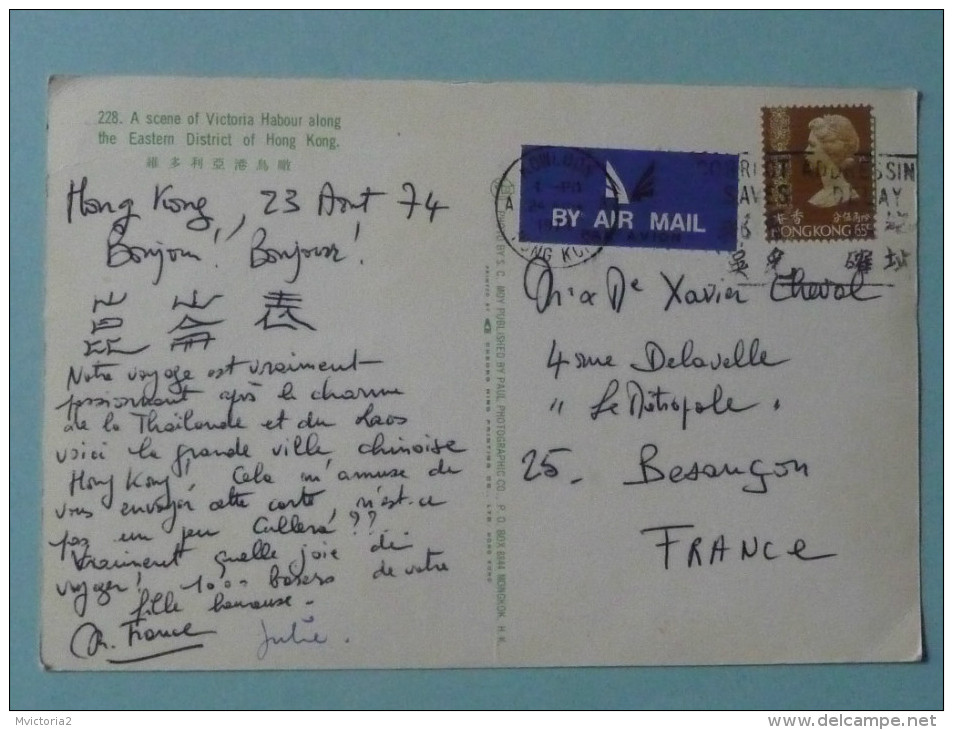 228. A scene of Victoria Habour along
the Eastern District of Hong Kong.
維多利亞港鳥瞰
Hong Kong, 23 Aout 74
Bonjour! Bonjour!
Notre voyage est vraiment
passionnant après le charme
de la Thaïlande et du Laos
voici la grande ville chinoise
Hong Kong! Cela m'amuse de
vous envoyer cette carte, n'est-ce
pas un peu Cullera??
Vraiment quelle joie de
voyager! 1000 baisers de votre
fille heureuse -
M. France
Julie.
PHOTO BY S. C. MOY PUBLISHED BY PAUL PHOTOGRAPHIC CO., P. O. BOX 6644 MONGKOK, H. K.
PRINTED BY
PRINTING CO., LTD. HONG KONG
KOWLOON
HONG KONG
BY AIR MAIL
PAR AVION
CORRECT ADDRESSIN
SAVES DELAY
香
HONG KONG 65c
Xavier Cheval
4 rue Delavelle
"Le Métropole"
25. Besançon
FRANCE
Mvictoria2
www.delcampe.net